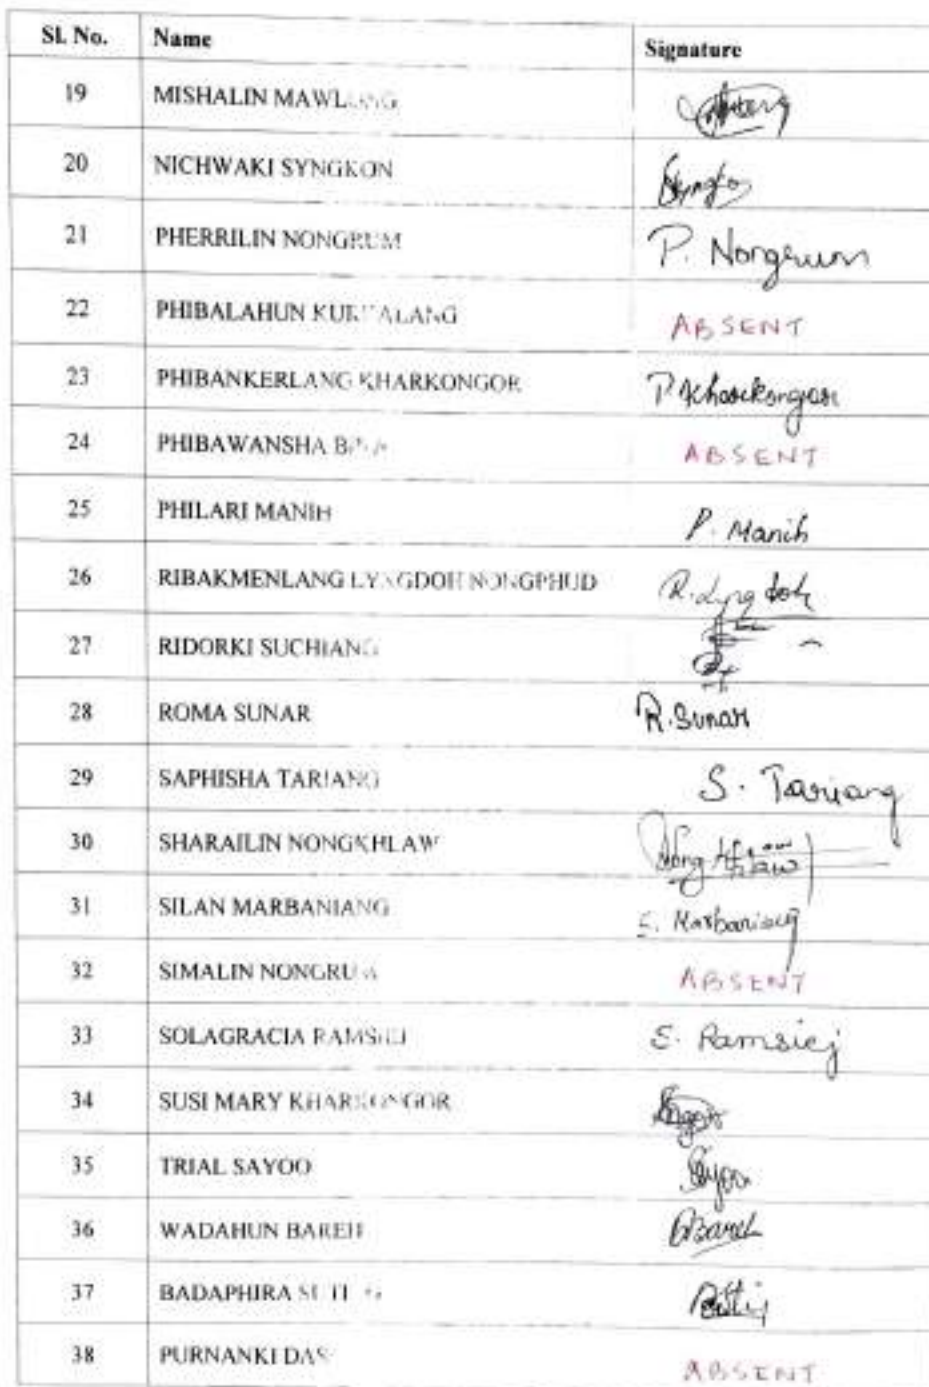 Sl. No. Name Signature
19 MISHALIN MAWLONG
20 NICHWAKI SYNGKON
21 PHERRILIN NONGRUM P. Nongrum
22 PHIBALAHUN ABSENT
23 PHIBANKERLANG KHARKONGOR P. Kharkongor
24 PHIBAWANSHA ABSENT
25 PHILARI MANIH P. Manih
26 RIBAKMENLANG LYNGDOH NONGPHUD R. Lyngdoh
27 RIDORKI SUCHIANG
28 ROMA SUNAR R. Sunar
29 SAPHISHA TARIANG S. Tariang
30 SHARAILIN NONGKHLAW Nongkhlaw
31 SILAN MARBANIANG S. Marbaniang
32 SIMALIN NONGRUM ABSENT
33 SOLAGRACIA RAMSIEJ S. Ramsiej
34 SUSI MARY KHARKONGOR
35 TRIAL SAYOO Sayoo
36 WADAHUN BAREH Bareh
37 BADAPHIRA
38 PURNANKI DAS ABSENT